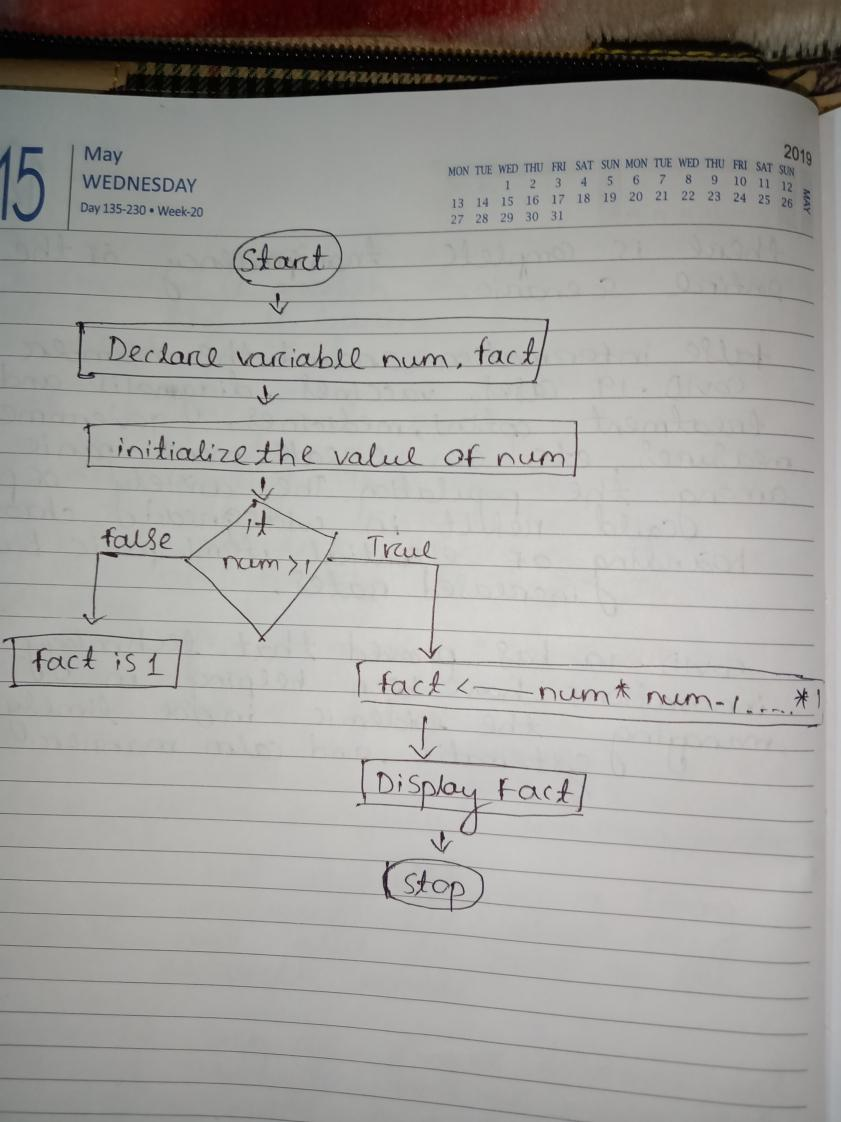 15
May
WEDNESDAY
Day 135-230 • Week-20
2019
MAY
MON TUE WED THU FRI SAT SUN MON TUE WED THU FRI SAT SUN
1 2 3 4 5 6 7 8 9 10 11 12
13 14 15 16 17 18 19 20 21 22 23 24 25 26
27 28 29 30 31
Start
Declare variable num, fact
initialize the value of num
if
num >1
false
True
fact is 1
fact <— num* num-1.....*1
Display Fact
Stop